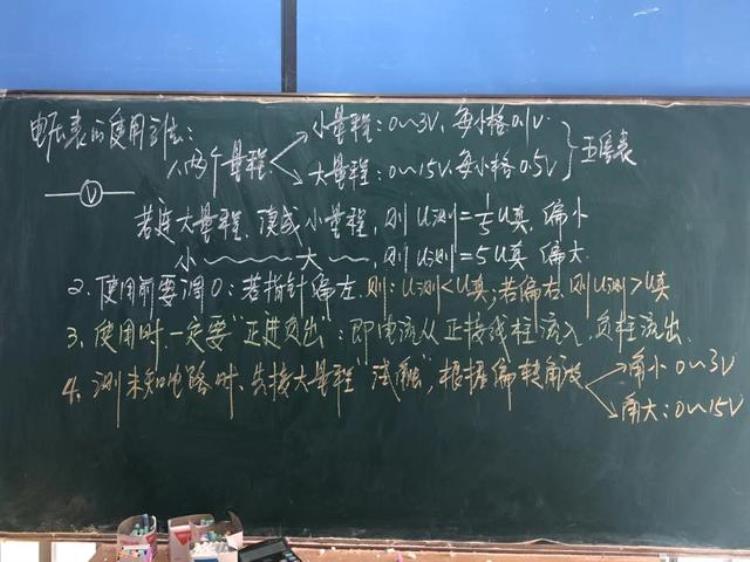 电压表的使用方法:
小量程:0~3V,每小格0.1V
1、两个量程
大量程:0~15V,每小格0.5V
五倍表
V
若选大量程,读成小量程,则U测=1/5U真,偏小
小~~~大~~,则U测=5U真 偏大
2、使用前要调0:若指针偏左,则:U测<U真;若偏右,则U测>U真
3、使用时,一定要"正进负出":即电流从正接线柱流入,负柱流出
4、测未知电路时、先接大量程"试触",根据偏转角度
角小0~3V
角大:0~15V